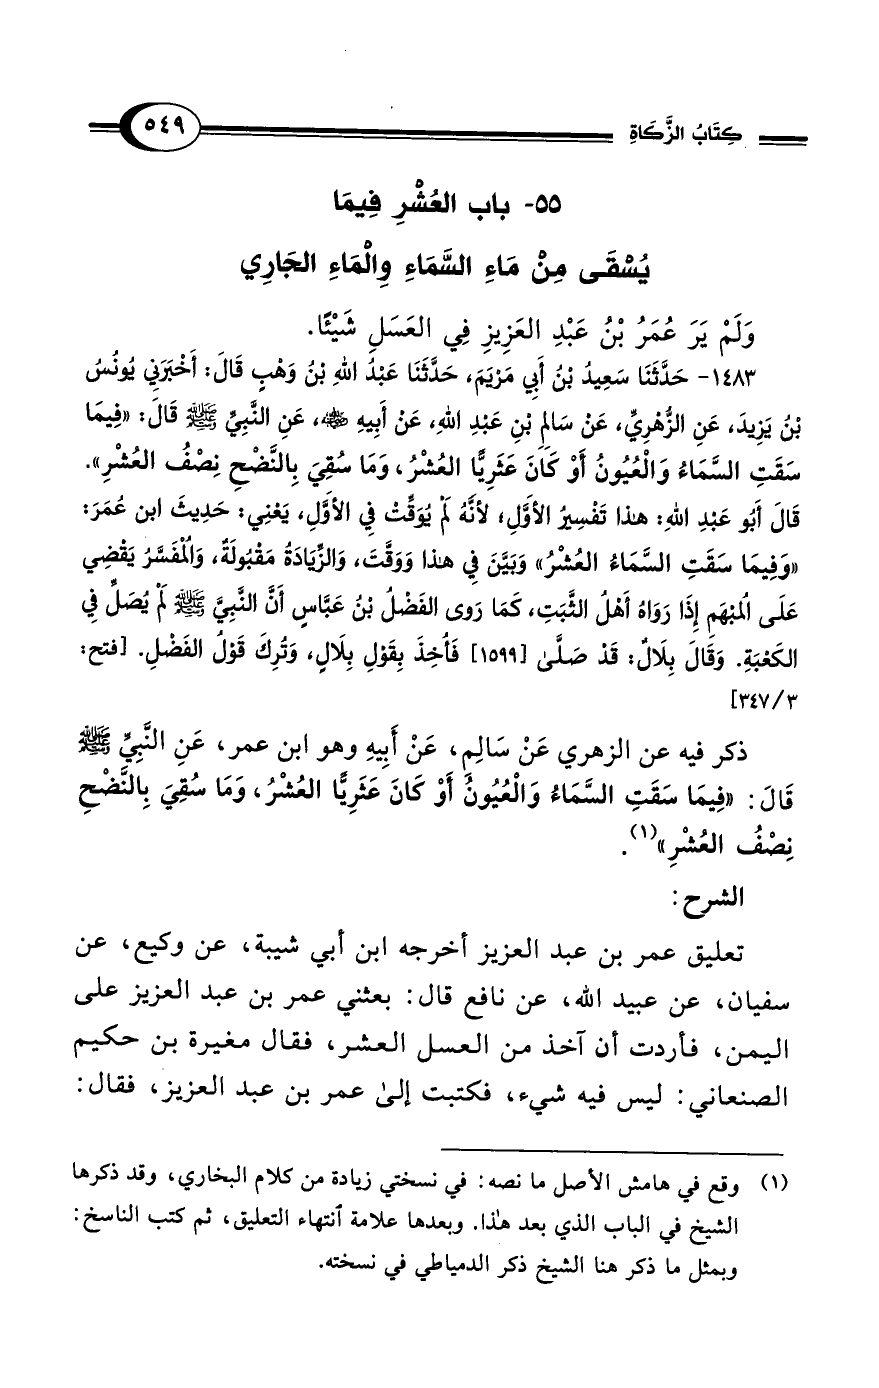 كِتَابُ الزَّكَاةِ ٥٤٩
٥٥- باب العُشْرِ فِيمَا
يُسْقَى مِنْ مَاءِ السَّمَاءِ وِالْمَاءِ الجَارِي
وَلَمْ يَرَ عُمَرُ بْنُ عَبْدِ العَزِيزِ فِي العَسَلِ شَيْئًا.
١٤٨٣- حَدَّثَنَا سَعِيدُ بْنُ أَبِي مَرْيَمَ، حَدَّثَنَا عَبْدُ اللهِ بْنُ وَهْبٍ قَالَ: أَخْبَرَنِي يُونُسُ
بْنُ يَزِيدَ، عَنِ الزُّهْرِيِّ، عَنْ سَالِمِ بْنِ عَبْدِ اللهِ، عَنْ أَبِيهِ ﵁، عَنِ النَّبِيِّ ﷺ قَالَ: «فِيمَا
سَقَتِ السَّمَاءُ وَالْعُيُونُ أَوْ كَانَ عَثَرِيًّا العُشْرُ، وَمَا سُقِيَ بِالنَّضْحِ نِصْفُ العُشْرِ».
قَالَ أَبُو عَبْدِ اللهِ: هذا تَفْسِيرُ الأَوَّلِ، لأَنَّهُ لَمْ يُوَقِّتْ فِي الأَوَّلِ، يَعْنِي: حَدِيثَ ابن عُمَرَ:
«وَفِيمَا سَقَتِ السَّمَاءُ العُشْرُ» وَبَيَّنَ فِي هذا وَوَقَّتَ، وَالزِّيَادَةُ مَقْبُولَةٌ، وَالْمُفَسَّرُ يَقْضِي
عَلَى الُمْبْهَمِ إِذَا رَوَاهُ أَهْلُ الثَّبَتِ، كَمَا رَوى الفَضْلُ بْنُ عَبَّاسٍ أَنَّ النَّبِيَّ ﷺ لَمْ يُصَلِّ فِي
الكَعْبَةِ. وَقَالَ بِلَالٌ: قَدْ صَلَّىٰ [١٥٩٩] فَأُخِذَ بِقَوْلِ بِلَالٍ، وَتُرِكَ قَوْلُ الفَضْلِ. [فتح:
٣/ ٣٤٧]
ذكر فيه عن الزهري عَنْ سَالِمٍ، عَنْ أَبِيهِ وهو ابن عمر، عَنِ النَّبِيِّ ﷺ
قَالَ: «فِيمَا سَقَتِ السَّمَاءُ وَالْعُيُونُ أَوْ كَانَ عَثَرِيًّا العُشْرُ، وَمَا سُقِيَ بِالنَّضْحِ
نِصْفُ العُشْرِ»(١).
الشرح:
تعليق عمر بن عبد العزيز أخرجه ابن أبي شيبة، عن وكيع، عن
سفيان، عن عبيد الله، عن نافع قال: بعثني عمر بن عبد العزيز على
اليمن، فأردت أن آخذ من العسل العشر، فقال مغيرة بن حكيم
الصنعاني: ليس فيه شيء، فكتبت إلىٰ عمر بن عبد العزيز، فقال:
(١) وقع في هامش الأصل ما نصه: في نسختي زيادة من كلام البخاري، وقد ذكرها
الشيخ في الباب الذي بعد هذا. وبعدها علامة ٱنتهاء التعليق، ثم كتب الناسخ:
وبمثل ما ذكر هنا الشيخ ذكر الدمياطي في نسخته.